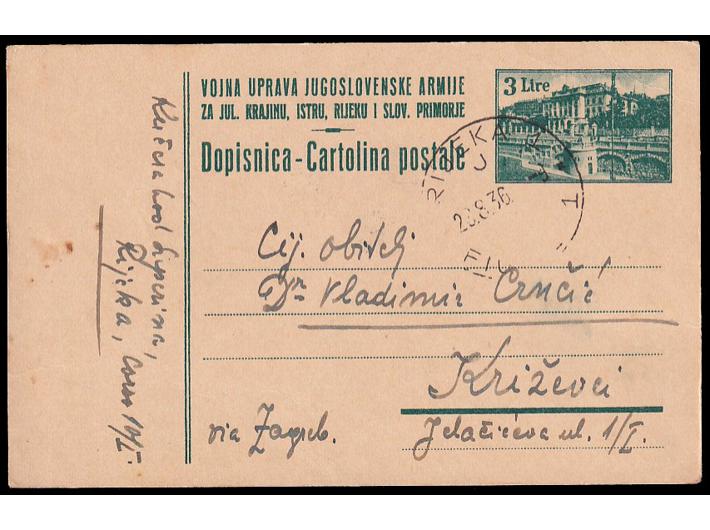 VOJNA UPRAVA JUGOSLOVENSKE ARMIJE
ZA JUL. KRAJINU, ISTRU, RIJEKU I SLOV. PRIMORJE
Dopisnica - Cartolina postale
3 Lire
RIJEKA
Cij. obitelj
Dr Vladimir Crnčić
Križevci
Jelačićeva ul. 1/I.
via Zagreb.
kod
Rijeka, Corso